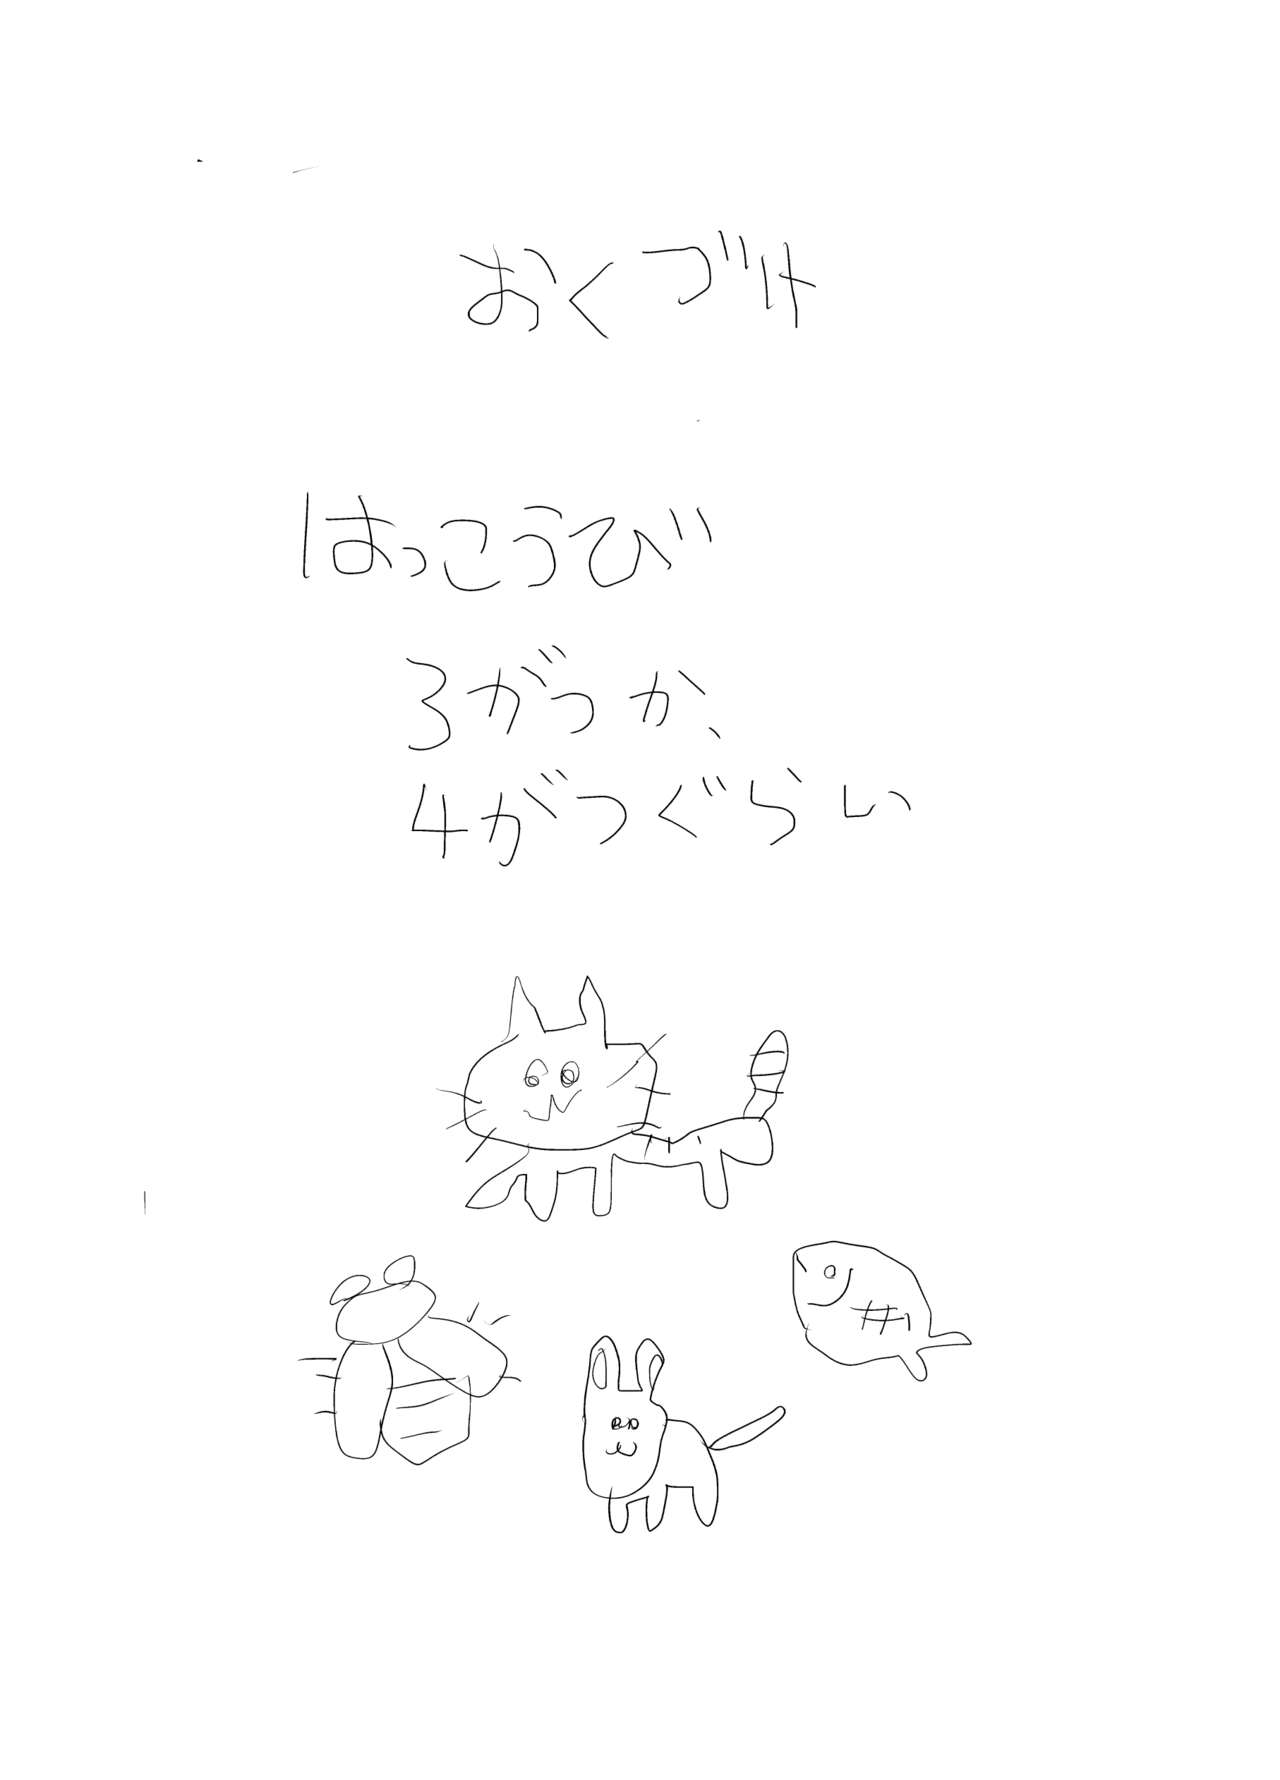 おくづけ
はっこうび
3がつか、
4がつぐらい